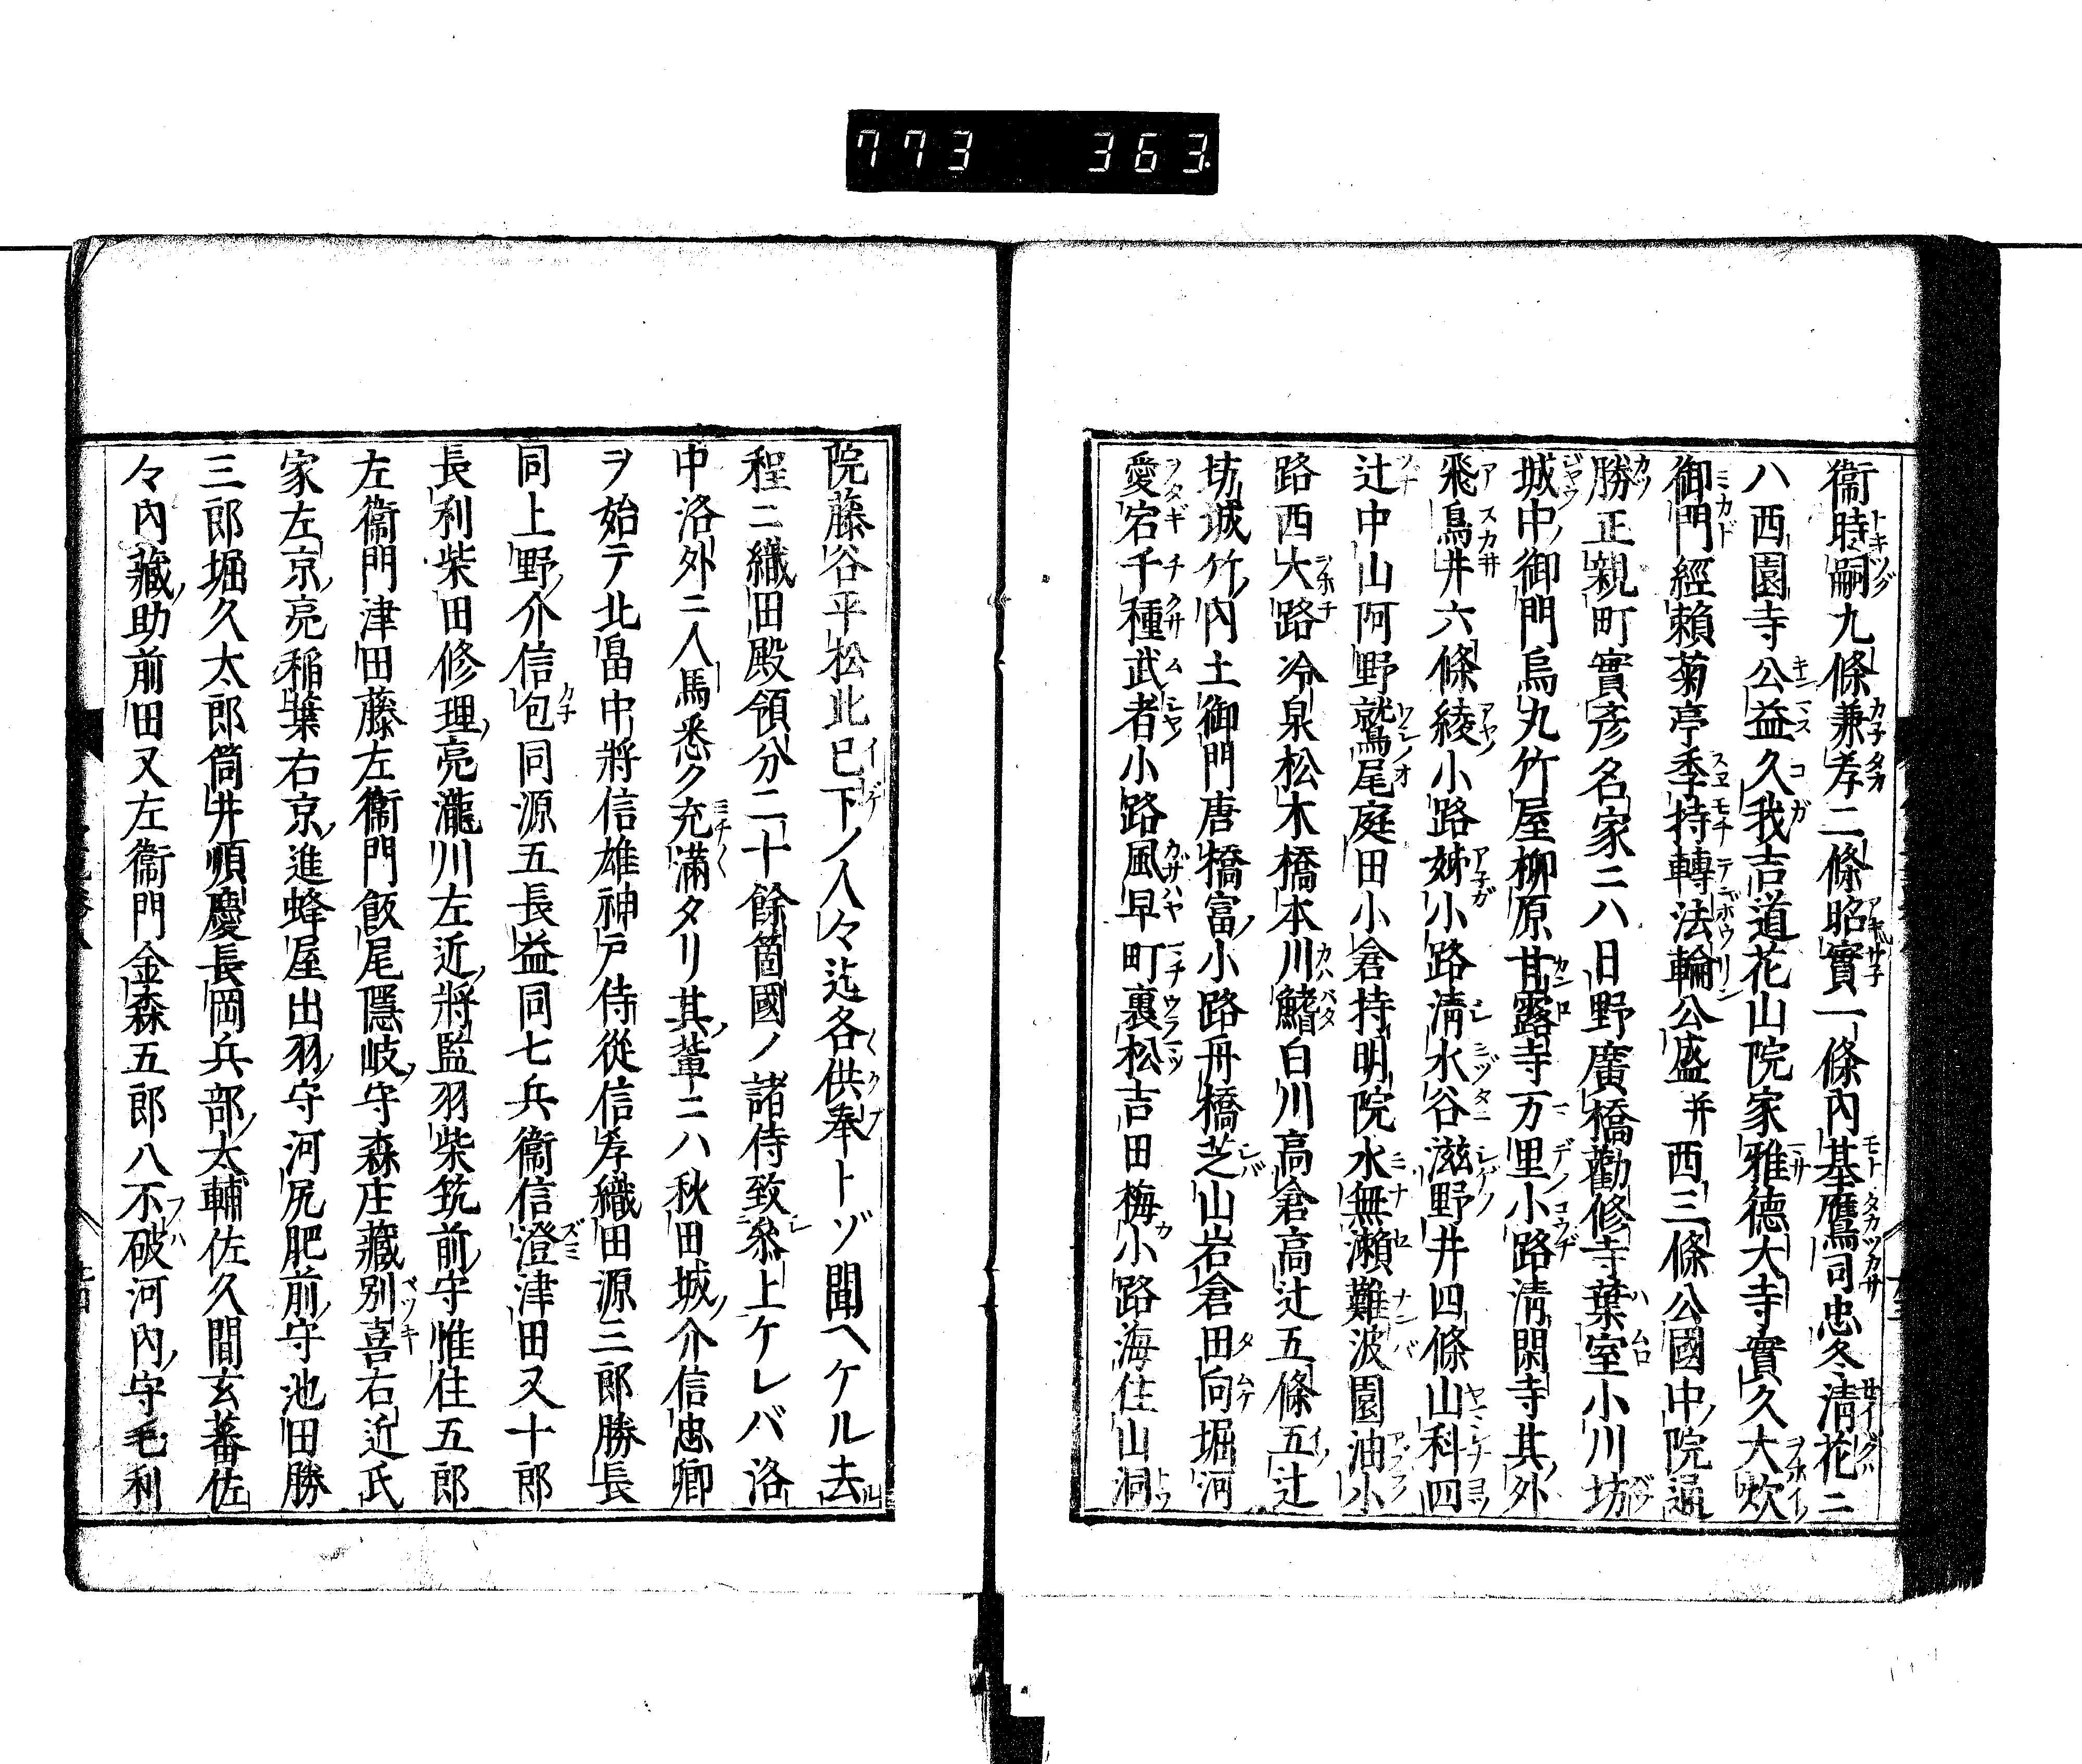 773 363
衞時嗣九條兼孝二條昭實一條內基鷹司忠冬淸花ニ
ハ西園寺公益久我吉道花山院家雅德大寺實久大炊
御門經賴菊亭季持轉法輪公盛并西三條公國中ノ院通
勝正親町實彥名家ニハ日野廣橋勸修寺葉室小川坊
城中ノ御門烏丸竹屋柳原甘露寺万里小路淸閑寺其ノ外
飛鳥井六條綾小路姊小路淸水谷滋野井四條山科四
辻中山阿野鷲尾庭田小倉持明院水無瀨難波園油小
路西大路冷泉松木橋本川鰭白川高倉高辻五條五辻
坊城竹ノ內土御門唐橋富ノ小路舟橋芝山岩倉田向堀河
愛宕千種武者小路風早町裏松吉田梅小路海住山洞
院藤谷平松此已下ノ人々迄各供奉トゾ聞ヘケル去
程ニ織田殿領分二十餘箇國ノ諸侍致參上ケレバ洛
中洛外ニ人馬悉ク充滿タリ其ノ輩ニハ秋田城ノ介信忠卿
ヲ始テ北畠中將信雄神戶侍從信孝織田源三郎勝長
同上野ノ介信包同源五長益同七兵衞信澄津田又十郎
長利柴田修理ノ亮瀧川左近ノ將監羽柴筑前ノ守惟住五郎
左衞門津田藤左衞門飯尾隱岐ノ守森庄藏別喜右近氏
家左京ノ亮稻葉右京ノ進蜂屋出羽ノ守河尻肥前ノ守池田勝
三郎堀久太郎筒井順慶長岡兵部ノ太輔佐久間玄蕃佐
々內藏ノ助前田又左衞門金森五郎八不破河內ノ守毛利